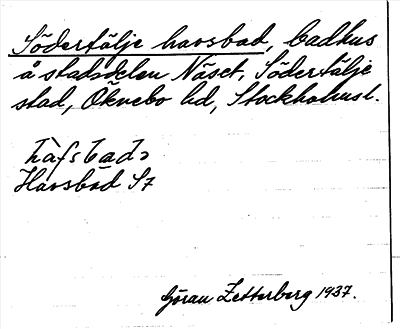 Södertälje havsbad, badhus
å stadsdelen Näset, Södertälje
stad, Öknebo hd, Stockholmsl.
hàfsbadə
Havsbad S7
Göran Zetterberg 1937.